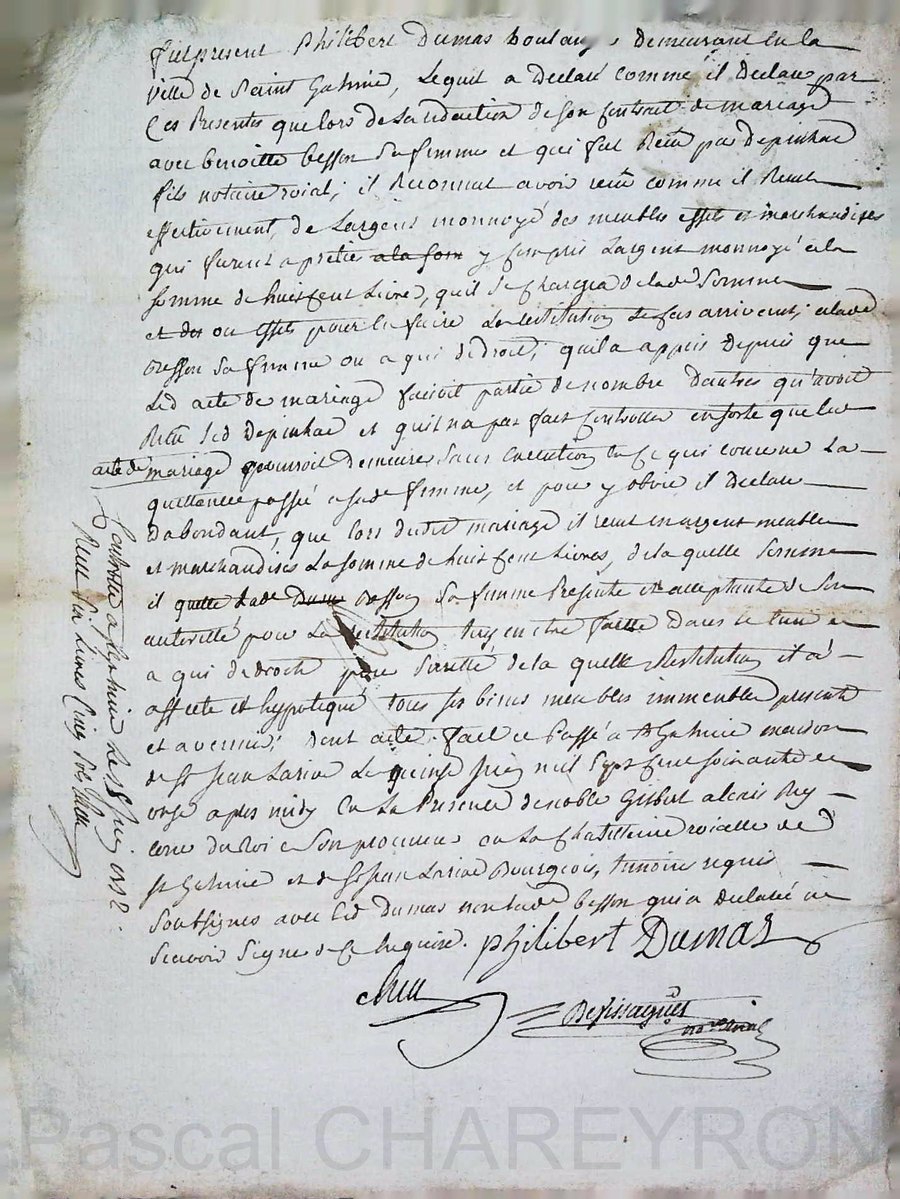 fut present Philibert Dumas boulan demeurant en la
ville de Saint Galmier, Lequel a declaré comme il declare par
Ces Presentes que lors de la redaction de son Contract de mariage
avec benoitte besson sa femme et qui fut Recu par depinhac
fils notaire roial; il Reconnut avoir recu comme il Recut
effectivement, de Largent monnoyé des meubles effets et marchandises
qui furent apretié a la som y Compris Largent monnoyé a la
somme de huit Cent Livres, quil se Chargea de lade Somme
et des ou effets pour en faire La restitution Le Cas arrivent; a lade
besson sa femme ou a qui de droit; quil a appris Depuis que
Led acte de mariage faisoit partie de nombre Dautres qu'avoit
Recu Led Depinhac et quil na pas fait Controller en sorte que led
acte de mariage pourroit demeurer sans Execution en Ce qui concerne La
quittance passée a sade femme, et pour y obvier il Declare
dabondant, que lors dudit mariage il recut en argent meubles
et marchandises La somme de huit Cent Livres, de la quelle Somme
il lade Dum besson sa femme Presente et acceptante de Son
autorité pour La restitution en etre faitte Dans le tem
a qui de droit pour Sureté de la quelle Restitution il a
affecté et hypotequé tous ses biens meubles immeubles presents
et avenir; dont acte; fait et Passé a St Galmier maison
de Sr Jean Larive Le quinse Juin mil Sept Cent soixante et
onze apres midy En La Presence de noble Gilbert alexis Rey
du Roi Son procureur en La Chatellenie roialle de
St Galmier et de Sr Jean Larive Bourgeois, temoins requis
Soussignés avec Led Dumas non lade besson qui a declaré ne
Scavoir Signer de Ce Enquise. Philibert Dumas
Depissagues
Controllé a St Galmier Le Juin 1771
Recu Six Livres Cinq Sols
Pascal CHAREYRON